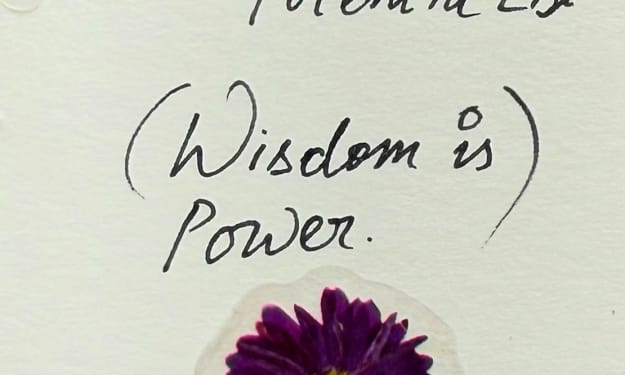 (Wisdom is)
Power.